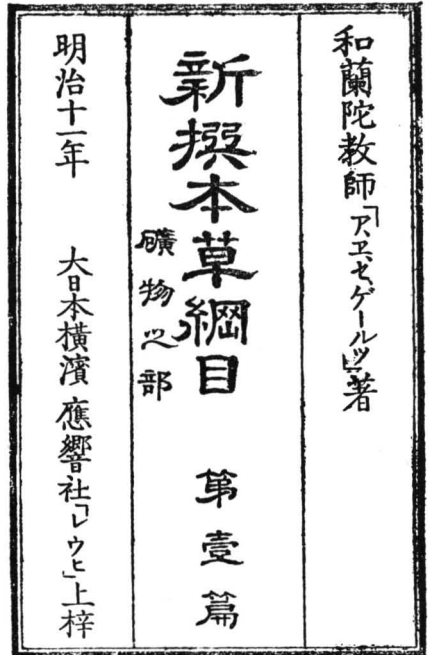 和蘭陀教師「ア、エ、セ、ゲールツ」著
新撰本草綱目 第壹篇
礦物之部
明治十一年 大日本橫濱應響社「レウヒ」上梓